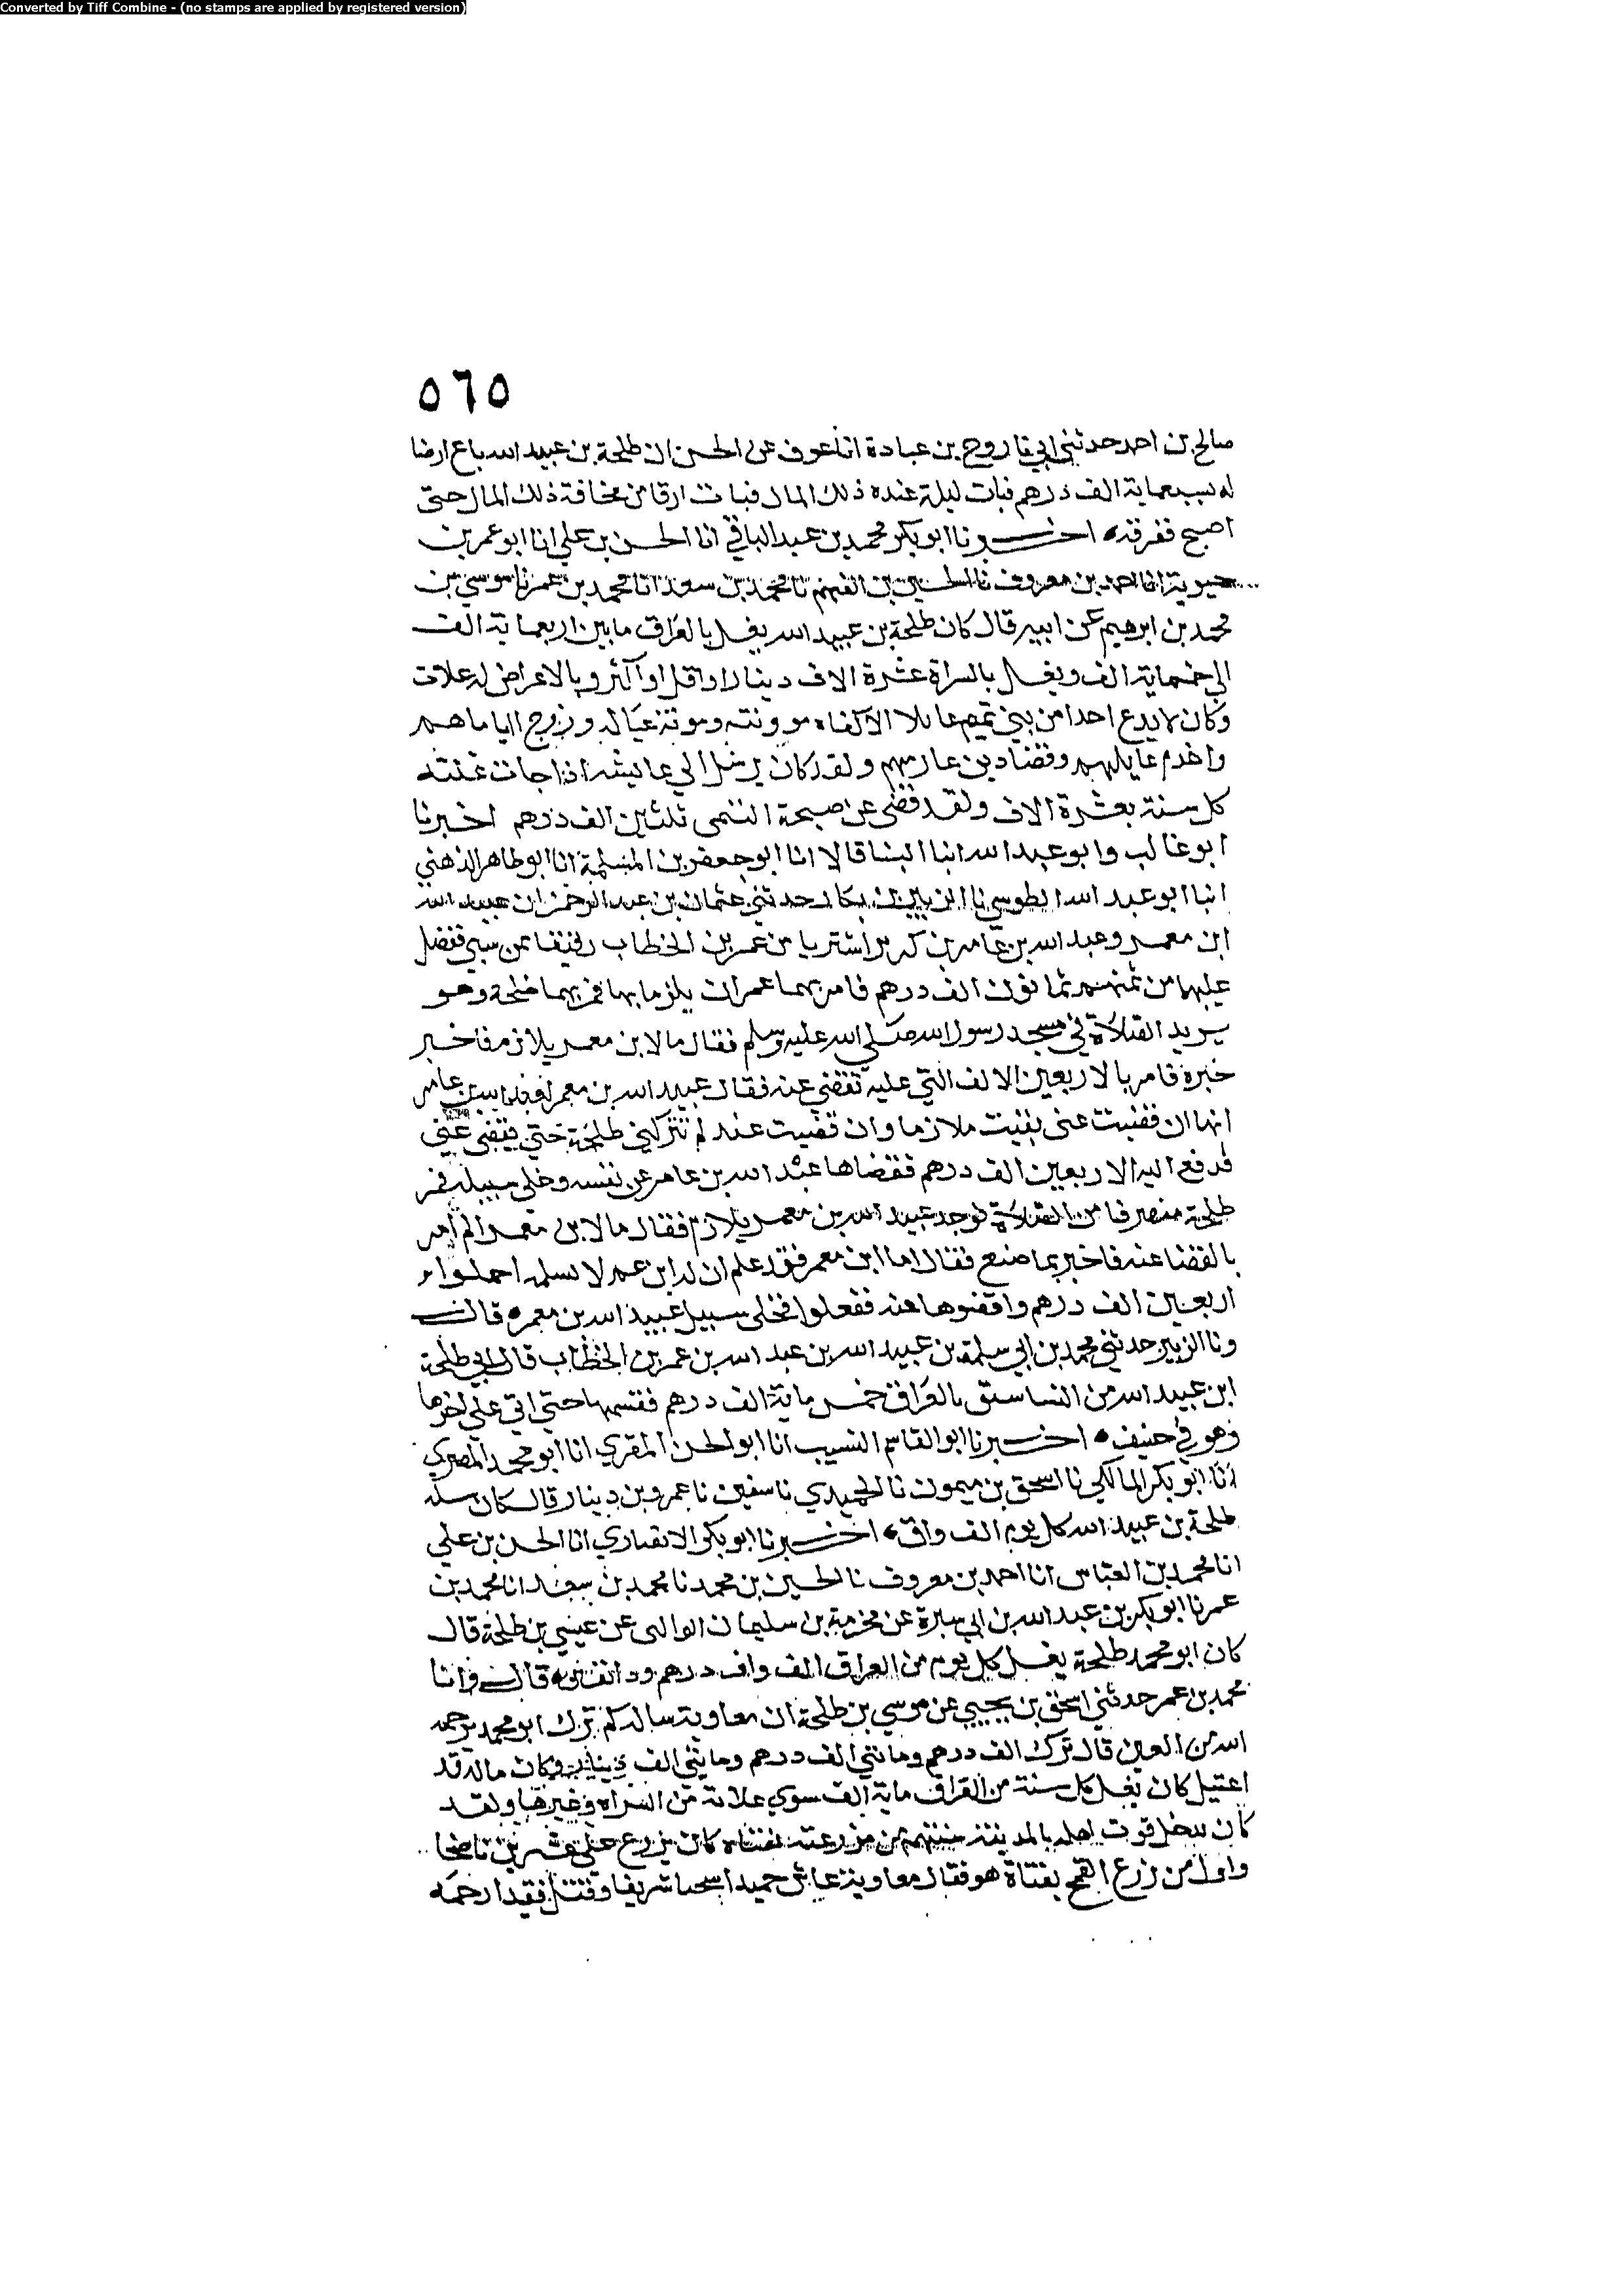 Converted by Tiff Combine - (no stamps are applied by registered version)
٥٦٥
صالح بن احمد حدثني ابي نا روح بن عبادة انا عوف عن الحسن ان طلحة بن عبيد الله باع ارضا
له بسبعماية الف درهم فبات ليلة عنده ذلك المال فبات ارقا من مخافة ذلك المال حتى
اصبح ففرقه اخبرنا ابو بكر محمد بن عبد الباقي انا الحسن بن علي انا ابو عمر بن
حيوية انا احمد بن معروف نا الحسين بن الفهم نا محمد بن سعد انا محمد بن عمر نا موسي بن
محمد بن ابرهيم عن ابيه قال كان طلحة بن عبيد الله يغل بالعراق ما بين اربعماية الف
الي خمسماية الف ويغل بالسراة عشرة الاف دينار او اقل او اكثر وبالاعراض له غلات
وكان لا يدع احدا من بني تميم عايلا الا كفاه موونته وموونة عياله وزوج اياماهم
واخدم عايلهم وقضا دين غارمهم ولقد كان يرسل الي عايشه اذا جات غلته
كل سنة بعشرة الاف ولقد قضى عن صبيحة التيمى ثلثين الف درهم اخبرنا
ابو غالب وابو عبد الله ابنا البنا قالا انا ابو جعفر بن المسلمة انا ابو طاهر الذهبي
انبا ابو عبد الله الطوسي نا الزبير بن بكار حدثني عثمان بن عبد الرحمن ان عبيد الله
ابن معمر وعبد الله بن عامر بن كريز اشتريا من عمر بن الخطاب رقيقا ممن سبي ففضل
عليهما من ثمنهم ثمانون الف درهم فامر بهما عمر ان يلزما بها فمر بهما طلحة وهو
يريد الصلاة في مسجد رسول الله صلي الله عليه وسلم فقال ما لابن معمر يلازم فاخبر
خبره فامر بالاربعين الالف التي عليه تقضي عنه فقال عبيد الله بن معمر لعبد الله بن عامر
انها ان قضيت عني بقيت ملازما وان قضيت عنك لم تتركني طلحة حتي يقضي عني
فدفع اليه الاربعين الف درهم فقضاها عبد الله بن عامر عن نفسه وخلي سبيله فمر
طلحة منصرفا من الصلاة فوجد عبيد الله بن معمر يلازم فقال ما لابن معمر الم امر
بالقضا عنه فاخبر بما صنع فقال اما ابن معمر فقد علم ان له ابن عم لا يسلمه احملوا
اربعين الف درهم واقضوها عنه ففعلوا فخلى سبيل عبيد الله بن معمر قال
ونا الزبير حدثني محمد بن ابي سلمة بن عبيد الله بن عبد الله بن عمر بن الخطاب قال ابي طلحة
ابن عبيد الله من النساستق بالعراق خمس ماية الف درهم فقسمها حتي اتي علي اخرها
وهو في اخبرنا ابو القاسم النسيب انا ابو الحسن المقري انا ابو محمد المصري
انا ابو بكر المالكي نا اسحق بن ميمون نا الحميدي نا سفين نا عمرو بن دينار قال كان
طلحة بن عبيد الله كل يوم الف واق اخبرنا ابو بكر الانصاري انا الحسن بن علي
انا محمد بن العباس انا احمد بن معروف نا الحسين بن محمد نا محمد بن سعد انا محمد بن
عمر نا ابو بكر بن عبد الله بن ابي سبرة عن مخرمة بن سليمان الوالبي عن عيسي بن طلحة قال
كان ابو محمد طلحة يغل كل يوم من العراق الف واف درهم ودانقين قال وانا
محمد بن عمر حدثني اسحق بن يحيي عن موسي بن طلحة ان معاوية ساله كم ترك ابو محمد يرحمه
الله من العين قال ترك الف درهم ومائتي الف درهم ومايتي الف دينار وكان ماله قد
اغتيل كان يغل كل سنة من العراق ماية الف سوي غلاته من السراه وغيرها ولقد
كان يدخل قوت اهله بالمدينة سنتهم من مزرعته بقناه كان يزرع علي عشرين ناضحا
واول من زرع القمح بقناة هو فقال معاوية عاش حميدا سخيا شريفا وقتل فقيدا رحمه